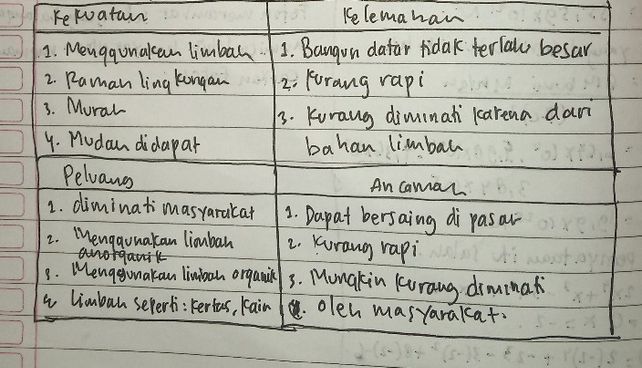 Kekuatan
1. Menggunakan limbah
2. Ramah lingkungan
3. Murah
4. Mudah didapat
Kelemahan
1. Bangun datar tidak terlalu besar
2. Kurang rapi
3. Kurang diminati karena dari
bahan limbah
Peluang
1. diminati masyarakat
2. Menggunakan limbah
anorganik
3. Menggunakan limbah organik
4. Limbah seperti: kertas, kain
Ancaman
1. Dapat bersaing di pasar
2. Kurang rapi
3. Mungkin kurang diminati
oleh masyarakat.